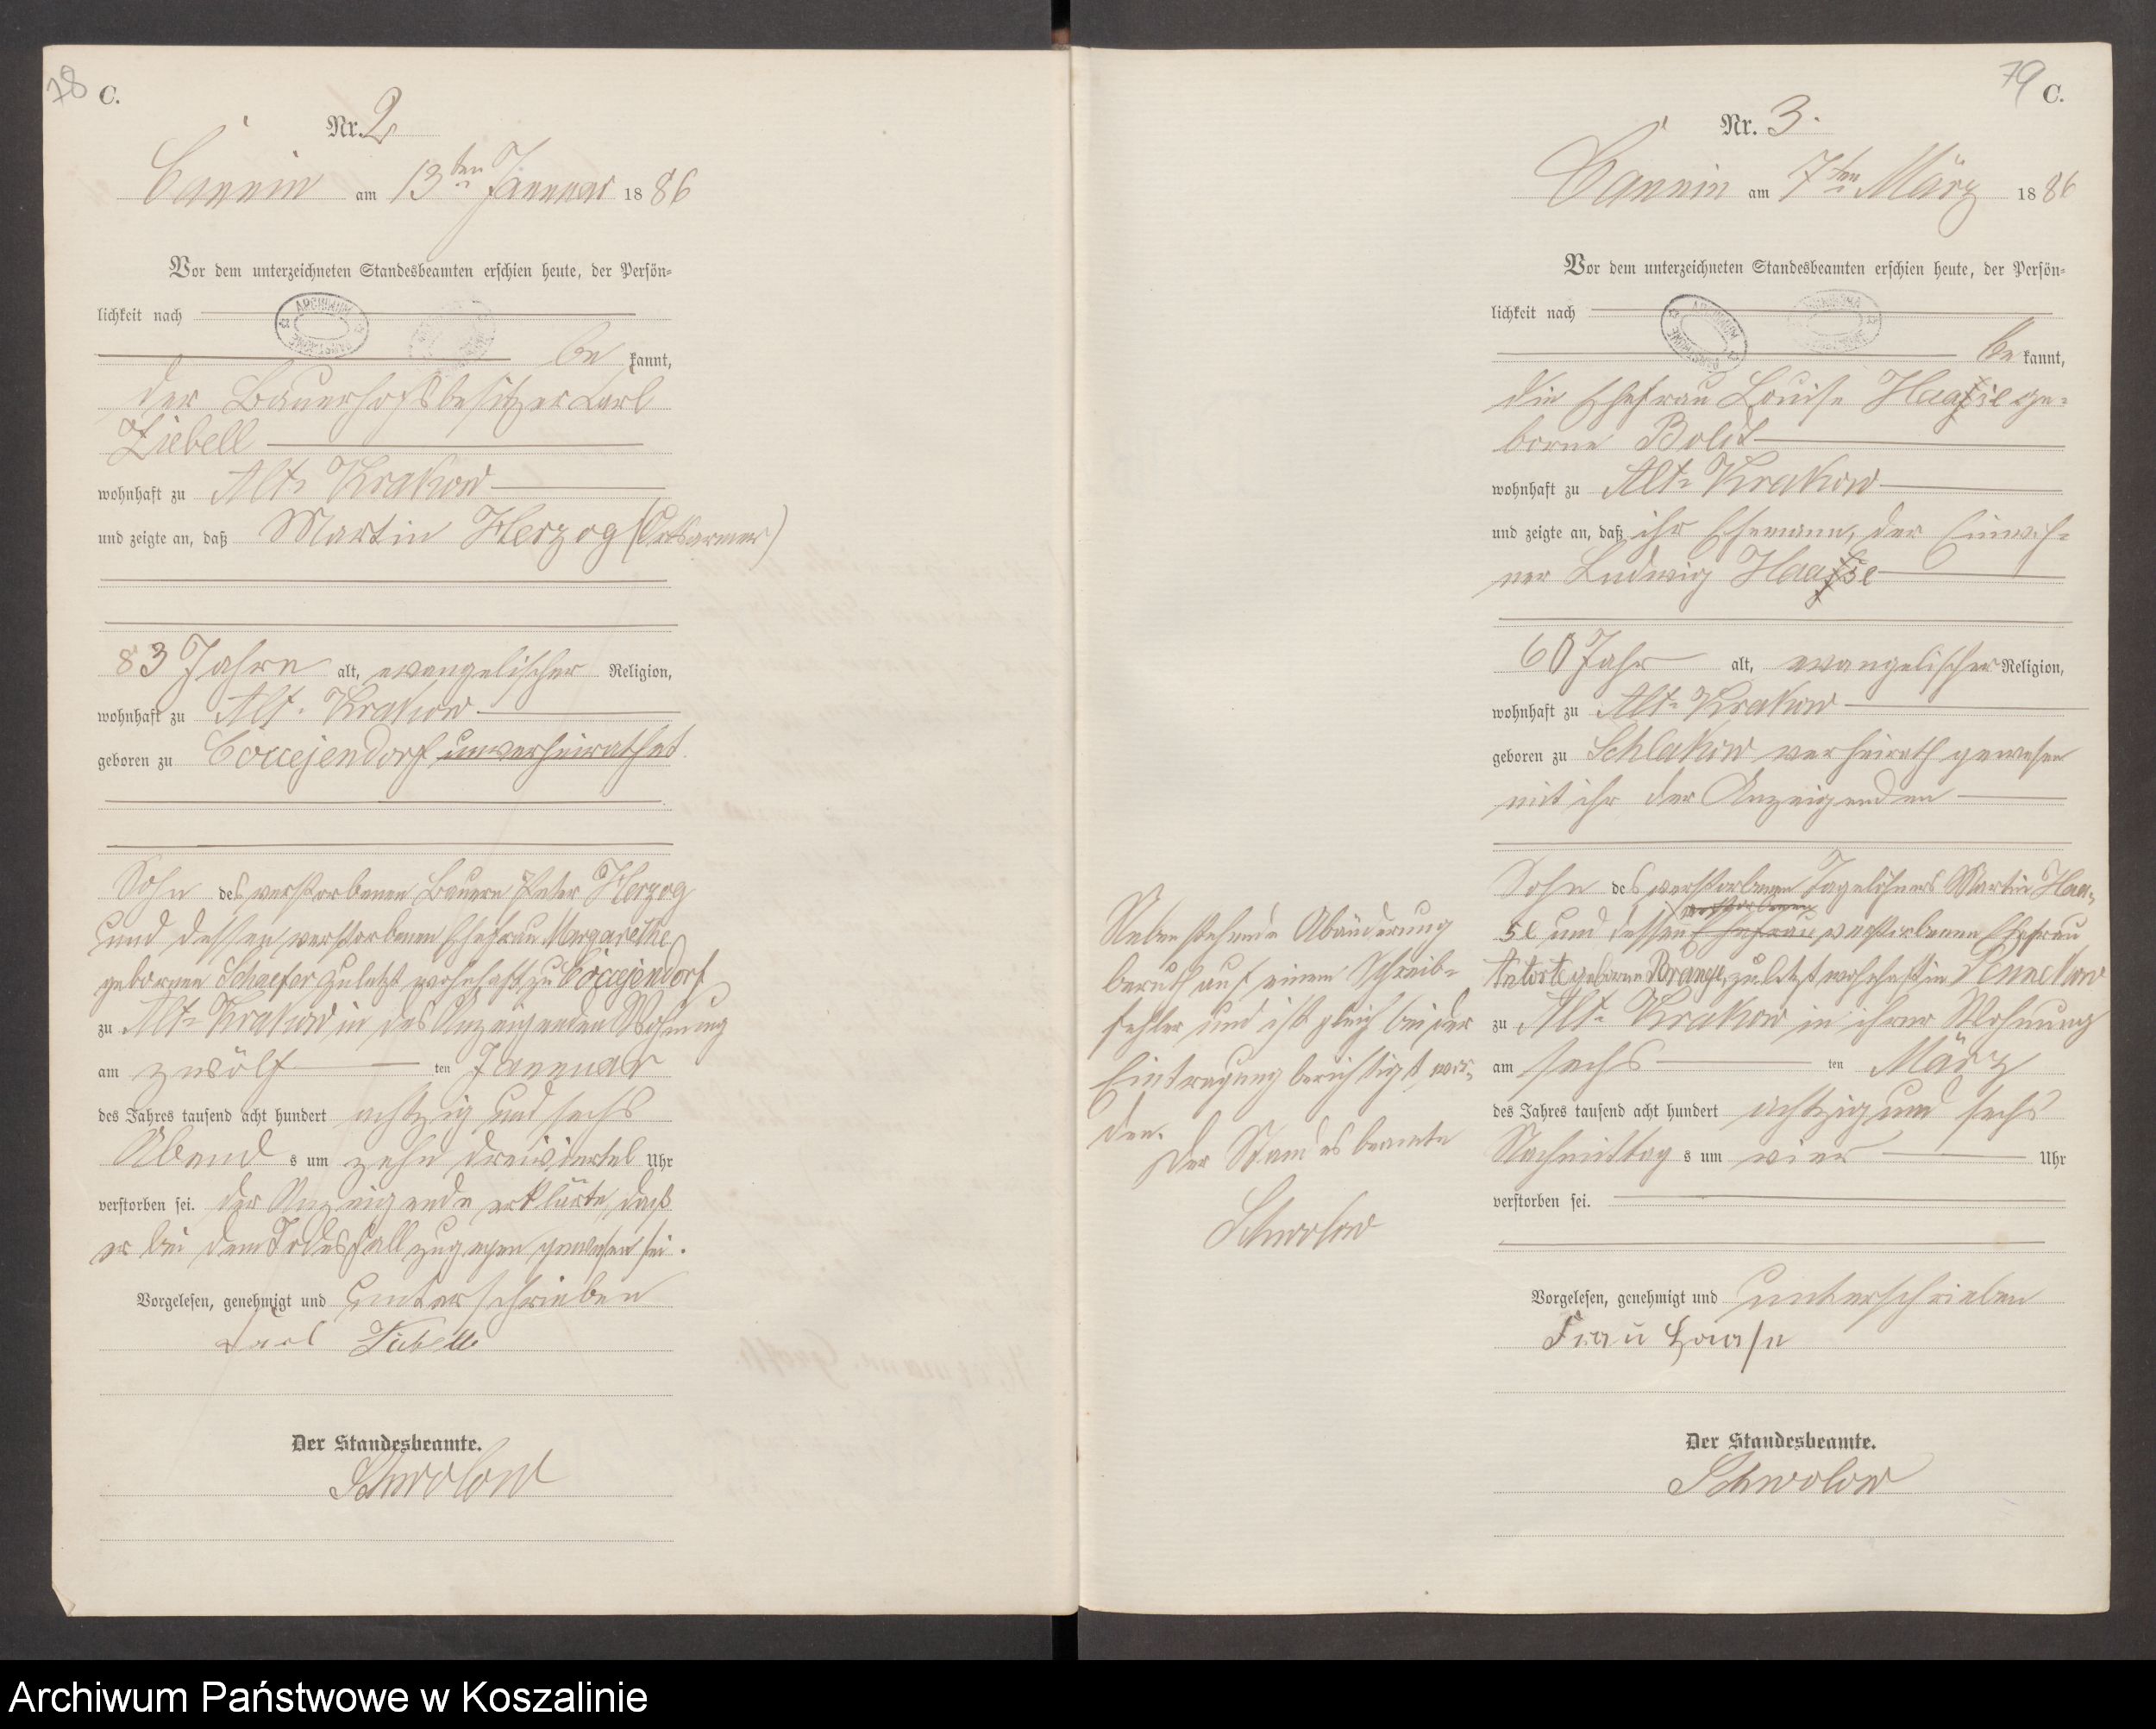 78 C.
Nr. 2
Cannin am 13ten Januar 1886
Vor dem unterzeichneten Standesbeamten erschien heute, der Persön-
lichkeit nach
be kannt,
der Bauerhofsbesitzer Carl
Ziebell
wohnhaft zu Alt-Krakow
und zeigte an, daß Martin Herzog (Ortsarmer)
83 Jahre alt, evangelischer Religion,
wohnhaft zu Alt-Krakow
geboren zu Coccejendorf unverheirathet
Sohn des verstorbenen Bauern Peter Herzog
und dessen verstorbenen Ehefrau Margarethe
gebornen Schaefer zuletzt wohnhaft zu Coccejendorf
zu Alt-Krakow in des Anzeigenden Wohnung
am zwölf ten Januar
des Jahres tausend acht hundert achtzig und sechs
Abend s um zehn dreiviertel Uhr
verstorben sei. Der Anzeigende erklärte, daß
er bei dem Todesfall zugegen gewesen sei.
Vorgelesen, genehmigt und unterschrieben
Carl Ziebell
Der Standesbeamte.
Schwolow
79 C.
Nr. 3.
Cannin am 7ten März 1886
Vor dem unterzeichneten Standesbeamten erschien heute, der Persön-
lichkeit nach
be kannt,
die Ehefrau Louise Haase ge-
borne Boldt
wohnhaft zu Alt-Krakow
und zeigte an, daß ihr Ehemann, der Einwoh-
ner Ludwig Haase
60 Jahr alt, evangelischer Religion,
wohnhaft zu Alt-Krakow
geboren zu Schlakow verheirath gewesen
mit ihr der Anzeigenden
Sohn des verstorbenen Tagelöhners Martin Haa-
se und dessen Ehefrau verstorbenen Ehefrau
geborene zuletzt wohnhaft in Pennekow
zu Alt-Krakow in ihrer Wohnung
am sechs ten März
des Jahres tausend acht hundert achtzig und sechs
Nachmittag s um vier Uhr
verstorben sei.
Vorgelesen, genehmigt und unterschrieben
Frau Haase
Der Standesbeamte.
Schwolow
Nebenstehende Abänderung
beruht auf einem Schreib-
fehler und ist gleich bei der
Eintragung berichtigt wor-
den.
Der Standesbeamte
Schwolow
Archiwum Państwowe w Koszalinie